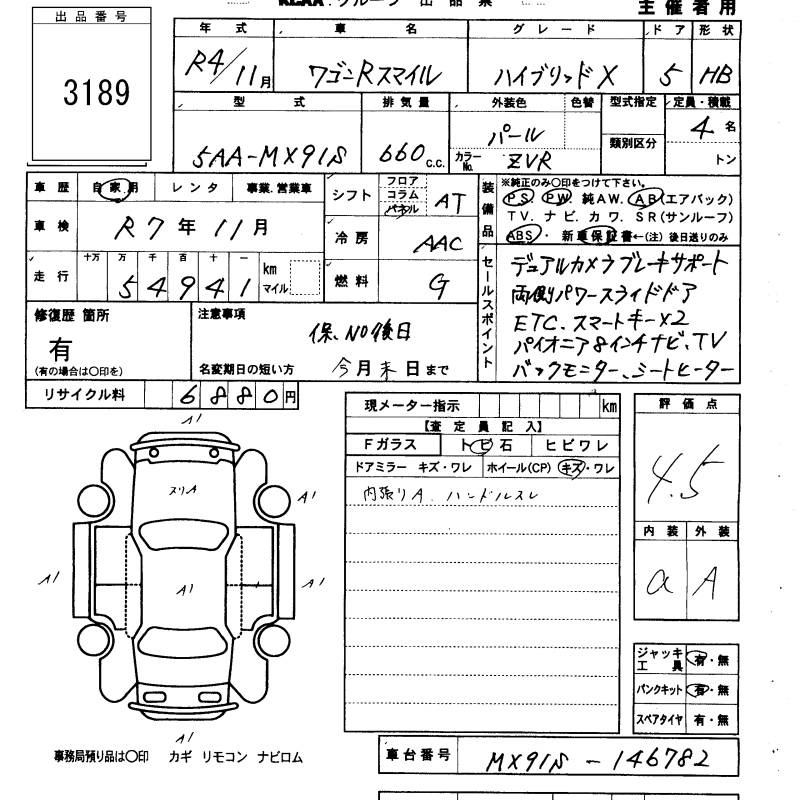 グループ 出品票
主催者用
出品番号
3189
年式 車名 グレード ドア 形状
R4/11月 ワゴンRスマイル ハイブリッドX 5 HB
型式 排気量 外装色 色替 型式指定 定員・積載
5AA-MX91S 660c.c. パール 類別区分 4名
カラーNo. ZVR トン
車歴 自家用 レンタ 事業.営業車
車検 R7年11月
走行 十万 万 千 百 十 一 km マイル
54941
シフト フロア コラム パネル AT
冷房 AAC
燃料 G
装備品 ※純正のみ〇印をつけて下さい。
PS PW 純AW. AB(エアバック)
TV. ナビ. カワ. SR(サンルーフ)
ABS・ 新車保証書←(注) 後日送りのみ
セールスポイント
デュアルカメラブレーキサポート
両側パワースライドドア
ETC.スマートキー×2
パイオニア8インチナビ、TV
バックモニター、シートヒーター
修復歴 箇所
有
(有の場合は〇印を)
注意事項
保、NO後日
名変期日の短い方 今月末日まで
リサイクル料 6880円
現メーター指示 km
【査定員記入】
Fガラス トビ石 ヒビワレ
ドアミラー キズ・ワレ ホイール(CP) キズ・ワレ
内張りA. ハンドルスレ
評価点
4.5
内装 外装
a A
ジャッキ工具 有・無
パンクキット 有・無
スペアタイヤ 有・無
A1
ヌリA
A1
A1
A1
A1
A1
事務局預り品は〇印 カギ リモコン ナビロム
車台番号 MX91S-146782